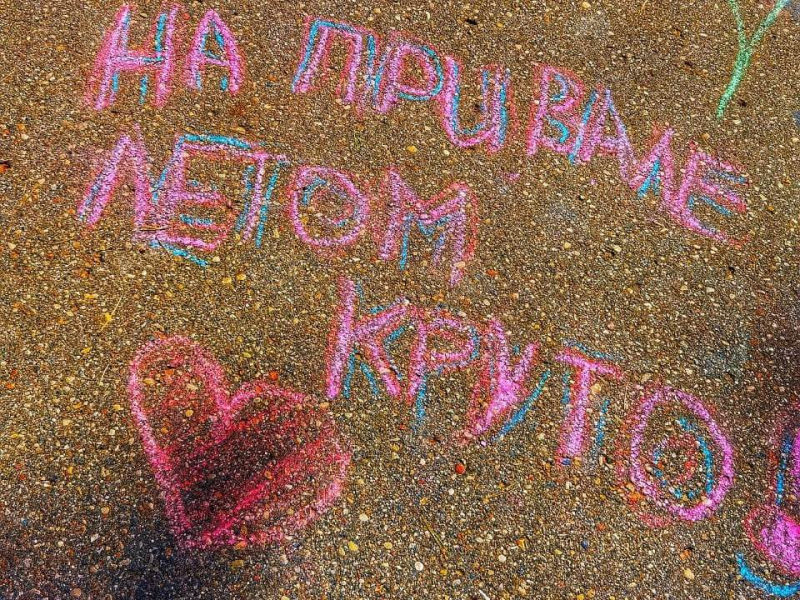 НА ПРИВАЛЕ
ЛЕТОМ
КРУТО!